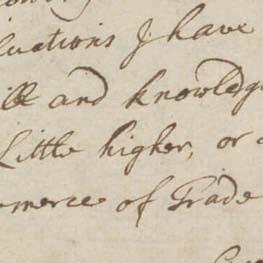 luations I have
ill and knowledg
Little higher, or
merce of Trade